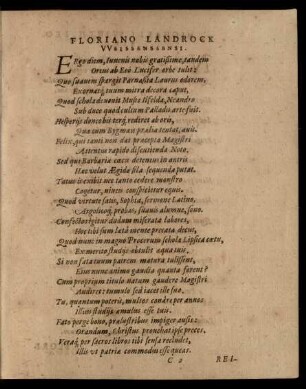 FLORIANO LANDROCK
VVEISSENSEENSI.
ERgo diem, Iuvenis nobis gratissime, tandem
Ortus ab Eoo Lucifer orbe tulit:
Quo suavem spargit Parnassia Laurus odorem,
Exornatq; tuum mitra decora caput,
Quod schola devenit Musis Elscida, Neandro
Sub duce quod cultum Palladis arte fuit.
Hesperijs donec bis terq; rediret ab oris,
Qua cum Bygman prœlia tentat, avis.
Felix, qui tanti non das præcepta Magistri
Attentus rapido diluenda Noto,
Sed quæ Barbariæ cæcis detentus in antris
Hac volut Ægida sequenda putat.
Tutus is exibis nec tanto cedere monstro
Cogitur, ninem conspicietur equis.
Quod virtute satis, Sophia, sermone Latino,
Argolicoq; probas, suavis alumne, sono.
Confessionisque dudum miserata labores,
Hoc tibi sum lato munere pacata decus,
Quod nunc in magno Procerum schola Lipsica cœtu,
Ex merito studijs obtulit aqua tuis,
Si non fata tuum patrem matura tulissent,
Eius nunc animus gaudia quanta furent?
Cum proprium titulo natum gaudere Magistri
Audiret: tumulo sed jacet ille suo,
Tu, quantum poteris, multos candre per annos
Illius studijs amulus esse tuis.
Fato perge bono, prælustribus impiger ausis:
Orandum, Christus promovet ipse preces,
Veraq; per sacros libros tibi sensa recludet,
Illis ut patria commodus esse queas.
C 2 REI-